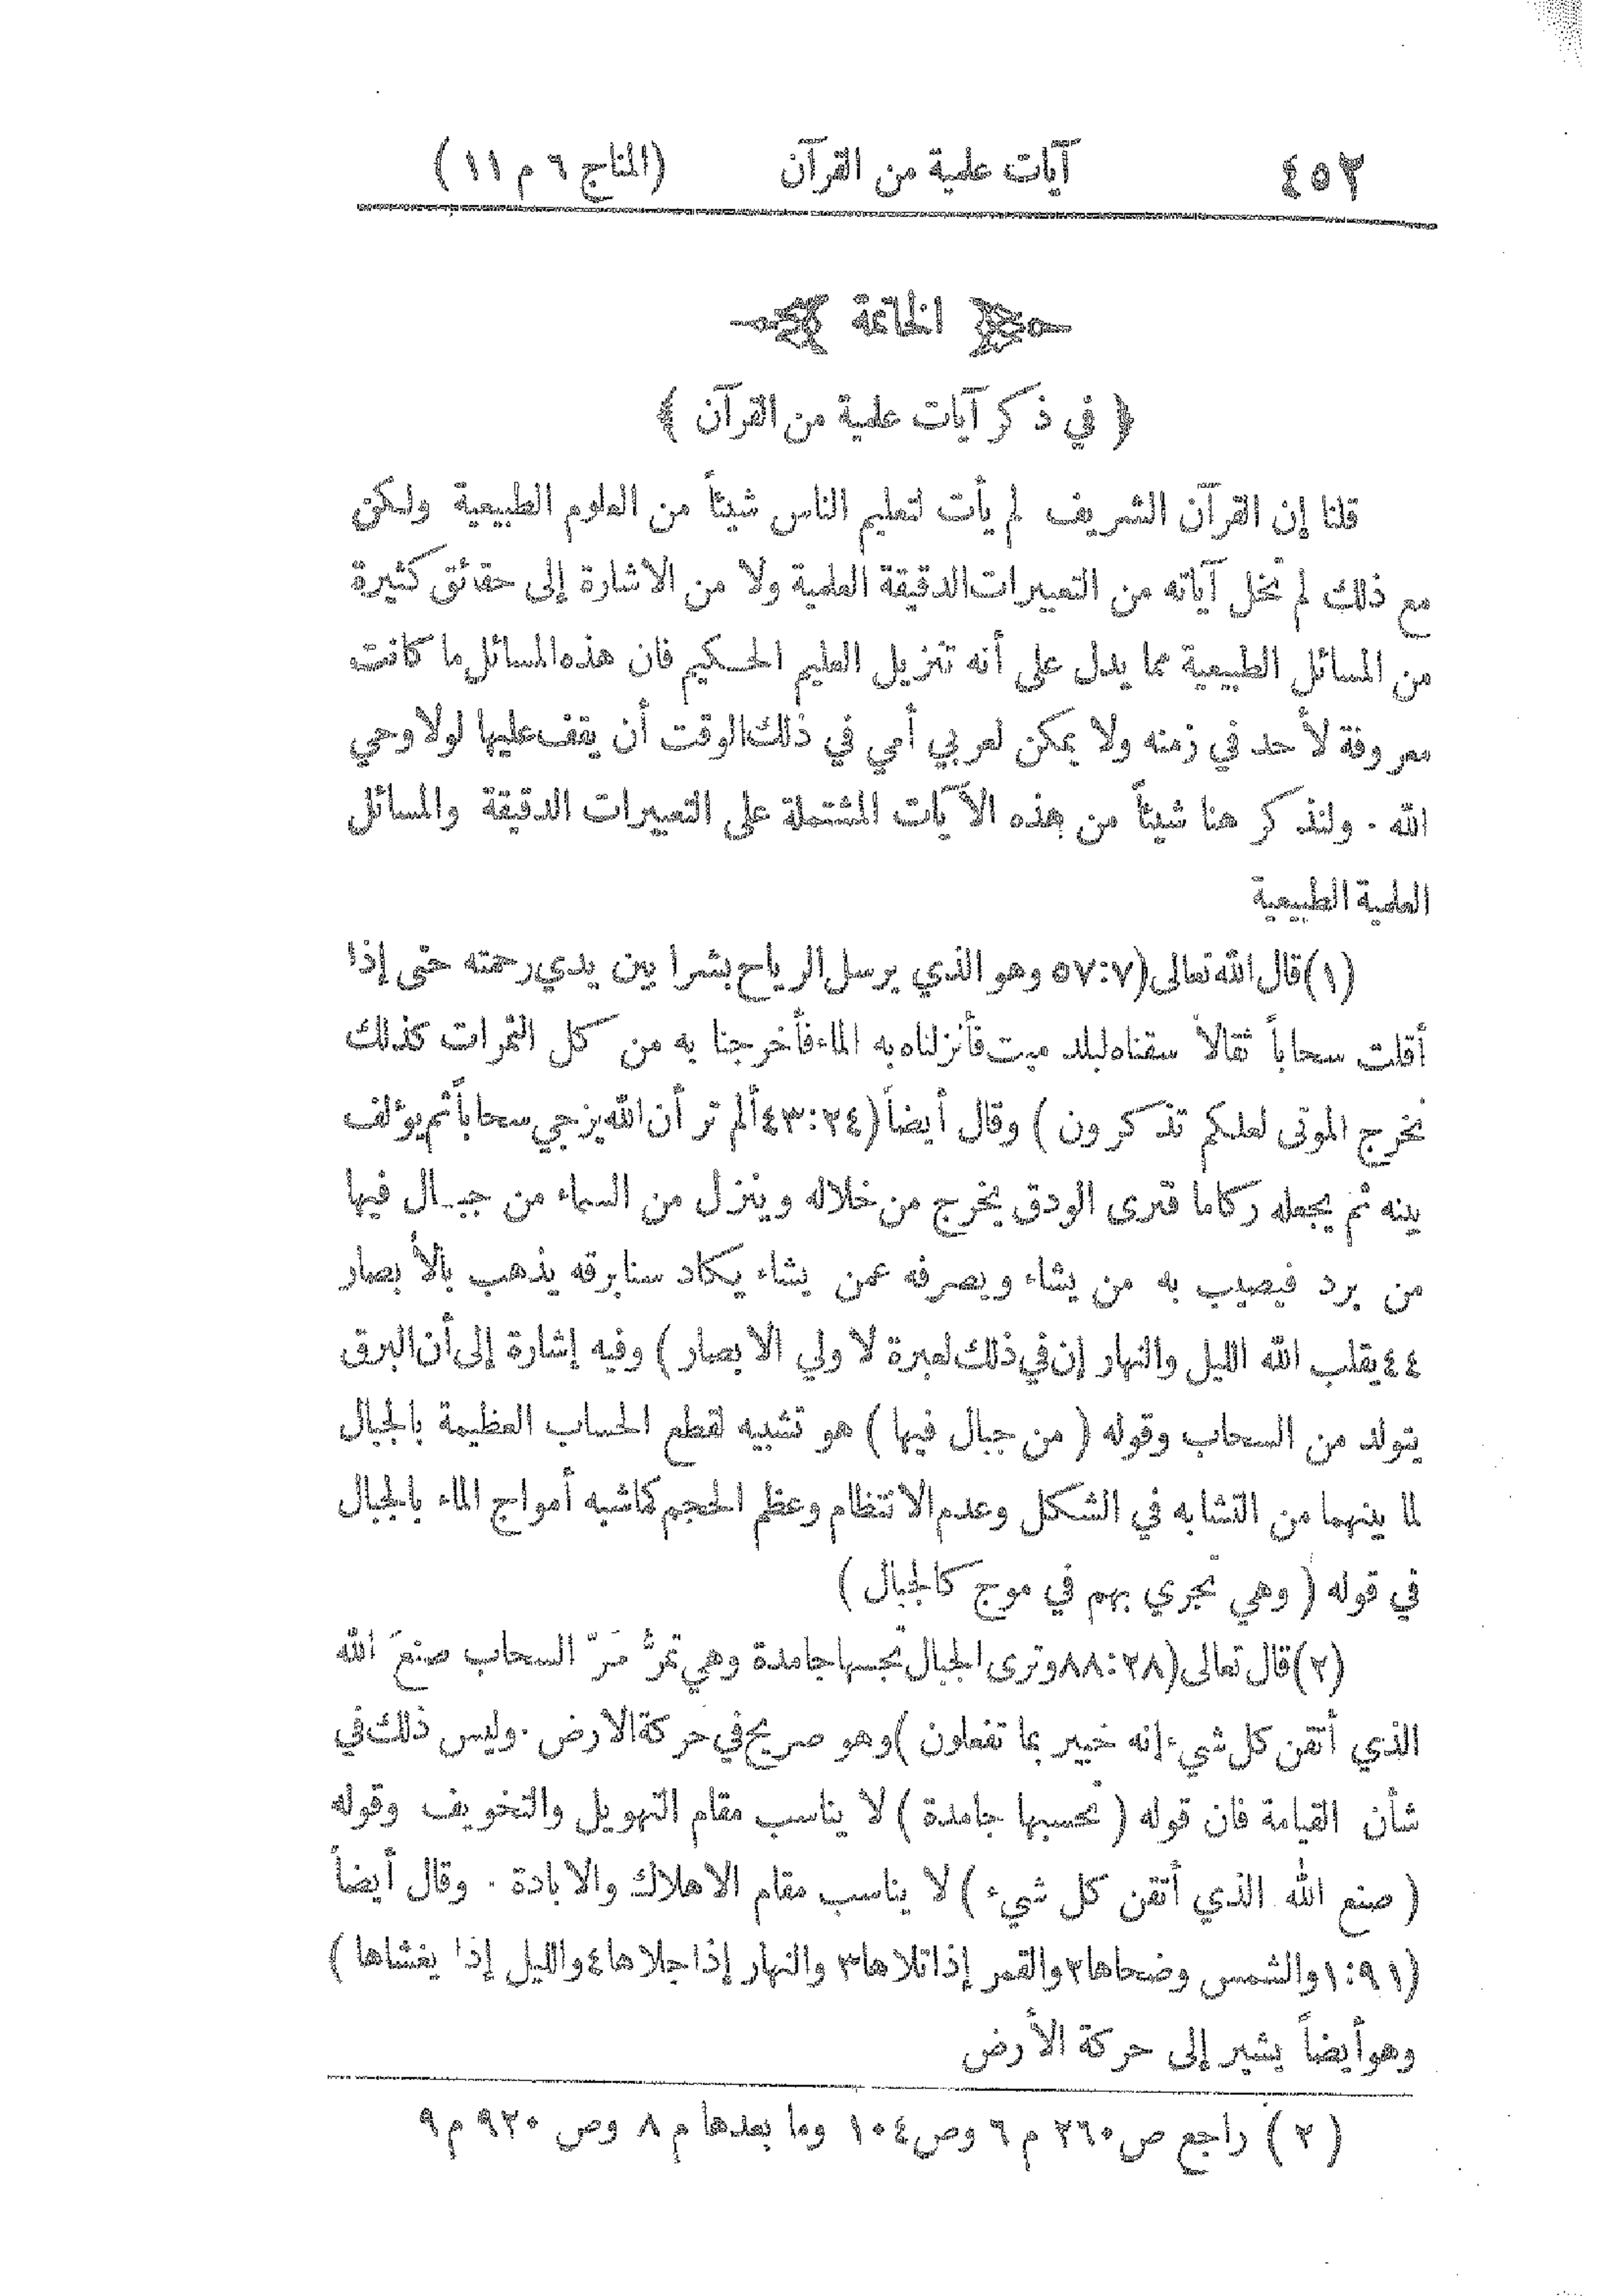 ٤٥٢ آيات علمية من القرآن (المناج ٦ م ١١)
الخاتمة
﴿ في ذكر آيات علمية من القرآن ﴾
قلنا إن القرآن الشريف لم يأت لتعليم الناس شيئاً من العلوم الطبيعية ولكن
مع ذلك لم تخل آياته من التعبيرات الدقيقة العلمية ولا من الاشارة إلى حقائق كثيرة
من المسائل الطبيعية مما يدل على أنه تنزيل العليم الحكيم فان هذه المسائل ما كانت
معروفة لأحد في زمنه ولا يمكن لعربي أمي في ذلك الوقت أن يقف عليها لولا وحي
الله . ولنذكر هنا شيئاً من هذه الآيات المشتملة على التعبيرات الدقيقة والمسائل
العلمية الطبيعية
(١) قال الله تعالى (٥٧:٧ وهو الذي يرسل الرياح بشرا بين يدي رحمته حتى إذا
أقلت سحاباً ثقالاً سقناه لبلد ميت فأنزلناه به الماء فأخرجنا به من كل الثمرات كذلك
نخرج الموتى لعلكم تذكرون ) وقال أيضاً (٤٣:٢٤ ألم تر أن الله يزجي سحاباً ثم يؤلف
بينه ثم يجعله ركاما فترى الودق يخرج من خلاله وينزل من السماء من جبال فيها
من برد فيصيب به من يشاء ويصرفه عمن يشاء يكاد سنا برقه يذهب بالأبصار
٤٤ يقلب الله الليل والنهار إن في ذلك لعبرة لاولي الابصار ) وفيه إشارة إلى أن البرق
يتولد من السحاب وقوله ( من جبال فيها ) هو تشبيه لقطع الحساب العظيمة بالجبال
لما بينهما من التشابه في الشكل وعدم الانتظام وعظم الحجم كما شبه أمواج الماء بالجبال
في قوله ( وهي تجري بهم في موج كالجبال )
(٢) قال تعالى (٨٨:٢٨ وترى الجبال تحسبها جامدة وهي تمرُّ مَرّ السحاب صنعَ الله
الذي أتقن كل شيء إنه خبير بما تفعلون ) وهو صريح في حركة الارض . وليس ذلك في
شأن القيامة فان قوله ( تحسبها جامدة ) لا يناسب مقام التهويل والتخويف وقوله
( صنع الله الذي أتقن كل شيء ) لا يناسب مقام الاهلاك والابادة . وقال أيضاً
(١:٩١ والشمس وضحاها ٢ والقمر إذا تلاها ٣ والنهار إذا جلاها ٤ والليل إذا يغشاها )
وهو أيضاً يشير إلى حركة الأرض
(٢) راجع ص ٢٦٠ م ٦ وص ١٠٤ وما بعدها م ٨ وص ٩٢٠ م ٩